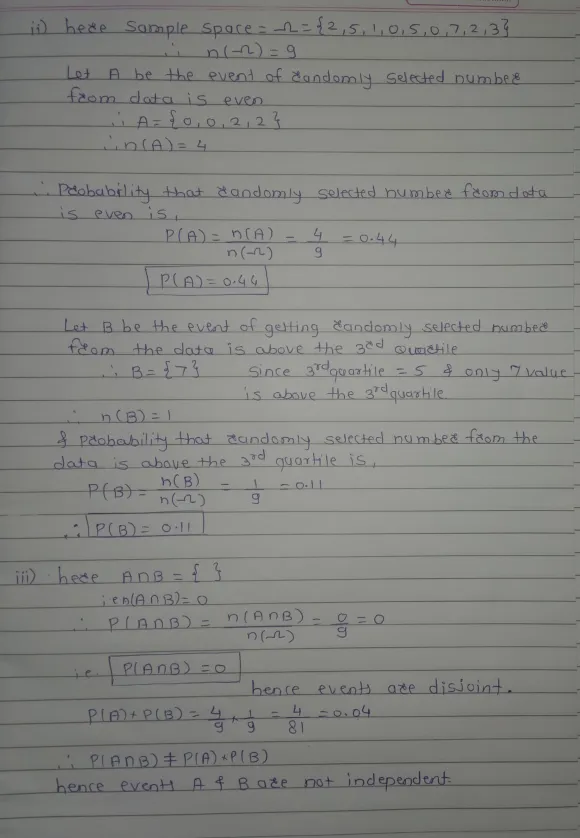 ii) here sample space = Ω = {2,5,1,0,5,0,7,2,3}
∴ n(Ω) = 9
Let A be the event of randomly selected number
from data is even
∴ A = {0,0,2,2}
∴ n(A) = 4
∴ Probability that randomly selected number from data
is even is,
P(A) = n(A)/n(Ω) = 4/9 = 0.44
P(A) = 0.44
Let B be the event of getting randomly selected number
from the data is above the 3rd Quartile
∴ B = {7} since 3rd quartile = 5 & only 7 value
is above the 3rd quartile
∴ n(B) = 1
& probability that randomly selected number from the
data is above the 3rd quartile is,
P(B) = n(B)/n(Ω) = 1/9 = 0.11
∴ P(B) = 0.11
iii) here A∩B = { }
i.e n(A∩B) = 0
∴ P(A∩B) = n(A∩B)/n(Ω) = 0/9 = 0
i.e. P(A∩B) = 0
hence events are disjoint.
P(A) * P(B) = 4/9 * 1/9 = 4/81 = 0.04
∴ P(A∩B) ≠ P(A) * P(B)
hence events A & B are not independent.